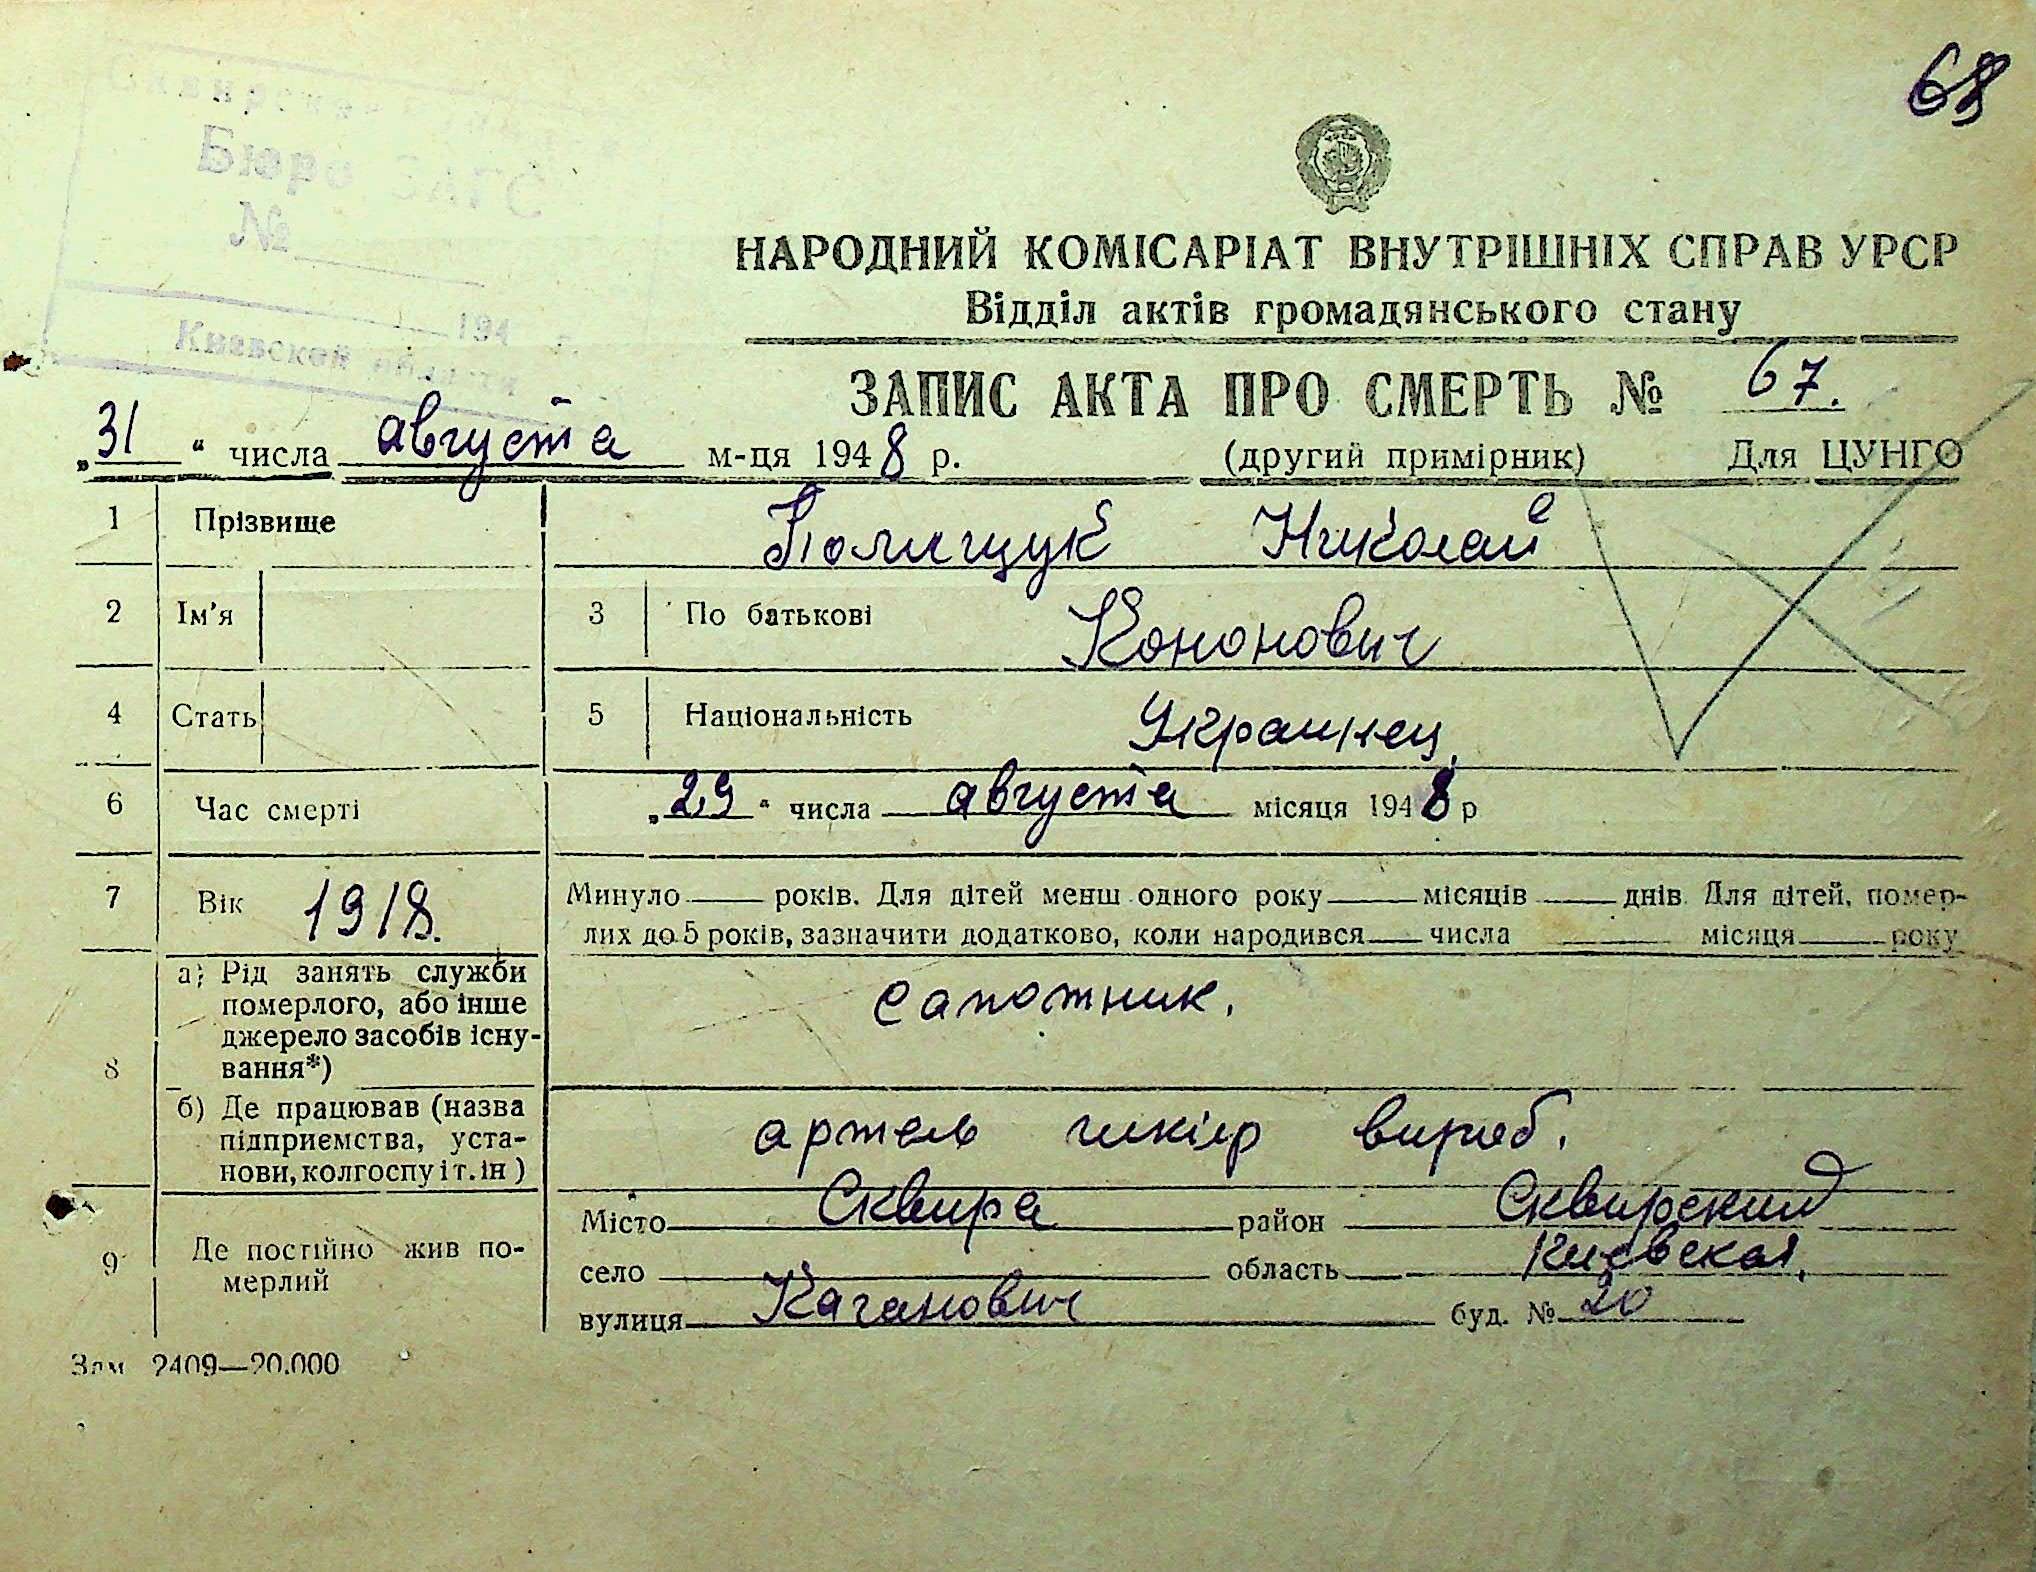 68
Бюро ЗАГС
№
194 г.
Киевской области
НАРОДНИЙ КОМІСАРІАТ ВНУТРІШНІХ СПРАВ УРСР
Відділ актів громадянського стану
ЗАПИС АКТА ПРО СМЕРТЬ № 67.
„31" числа августа м-ця 1948 р. (другий примірник) Для ЦУНГО
1 Прізвище Полищук Николай
2 Ім'я 3 По батькові Кононович
4 Стать 5 Національність Украинец
6 Час смерті „29" числа августа місяця 1948 р
7 Вік 1918. Минуло років. Для дітей менш одного року місяців днів Для дітей, помер-
лих до 5 років, зазначити додатково, коли народився числа місяця року
8 а) Рід занять служби
померлого, або інше
джерело засобів існу-
вання*)
сапожник.
б) Де працював (назва
підприємства, уста-
нови, колгоспу і т. ін)
артель шкір вироб.
9 Де постійно жив по-
мерлий
Місто Сквира район Сквирский
село область Киевская,
вулиця Каганович буд. № 20
Зам 2409—20.000